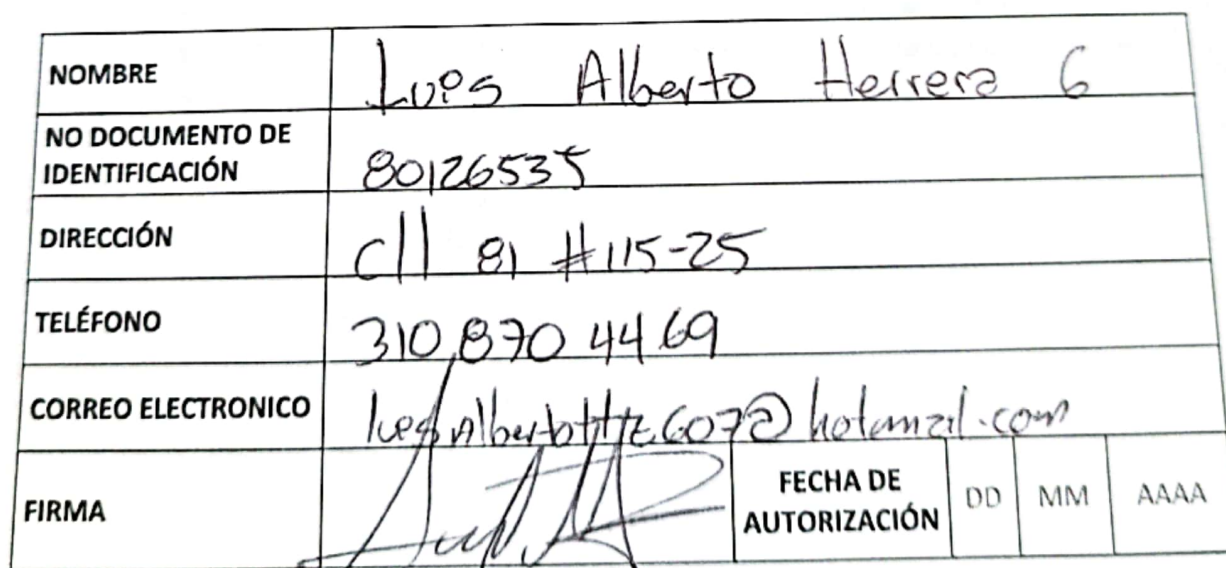 NOMBRE Luis Alberto Herrera G
NO DOCUMENTO DE
IDENTIFICACIÓN 80126535
DIRECCIÓN cll 81 #115-25
TELÉFONO 310 870 44 69
CORREO ELECTRONICO @hotmail.com
FIRMA
FECHA DE
AUTORIZACIÓN DD MM AAAA